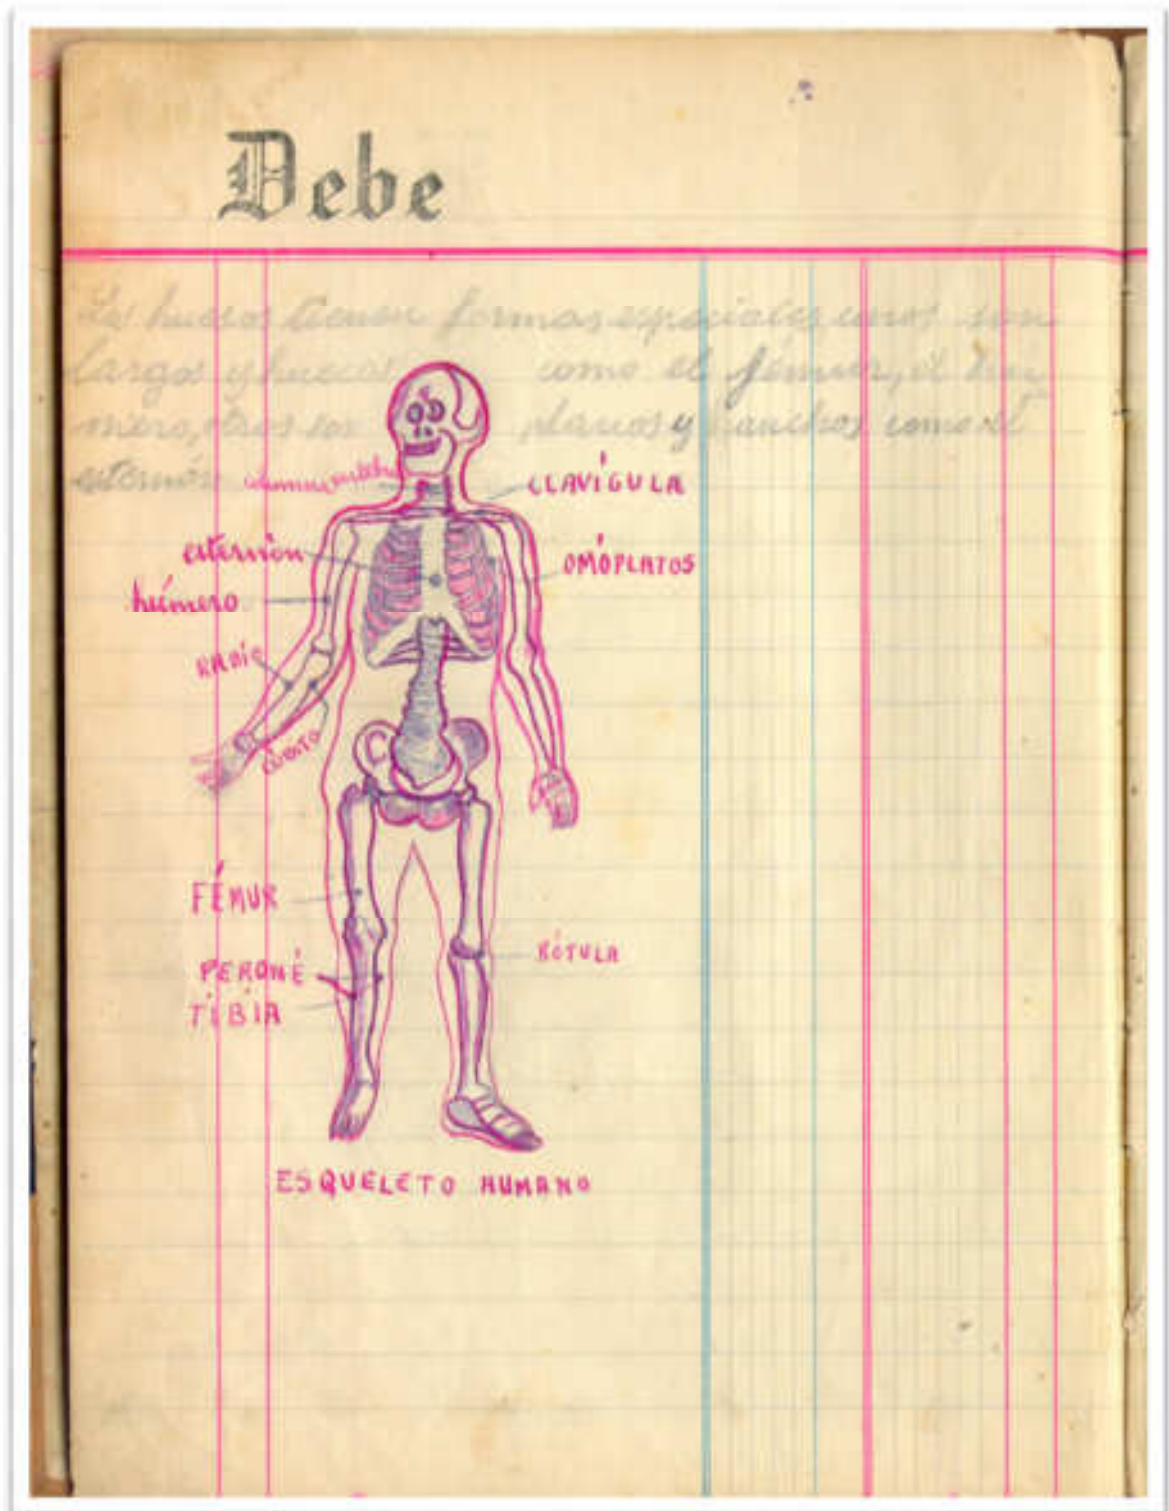 Debe
Los huesos tienen formas especiales unos son
largos y huecos como el fémur, el hú
mero, otros son planos y anchos como el
esternón
columna
CLAVÍGULA
esternón
OMÓPLATOS
húmero
RADIO
CÚBITO
FÉMUR
RÓTULA
PERONÉ
TIBIA
ESQUELETO HUMANO